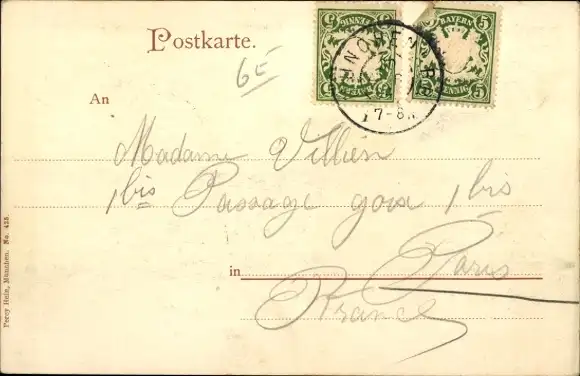 Postkarte.
6E
BAYERN
5 5
PFENNIG
BAYERN
5 5
PFENNIG
7-8
An
Madame Villien
1 bis Passage 1 bis
in Paris
France
Percy Hein, München. No. 435.